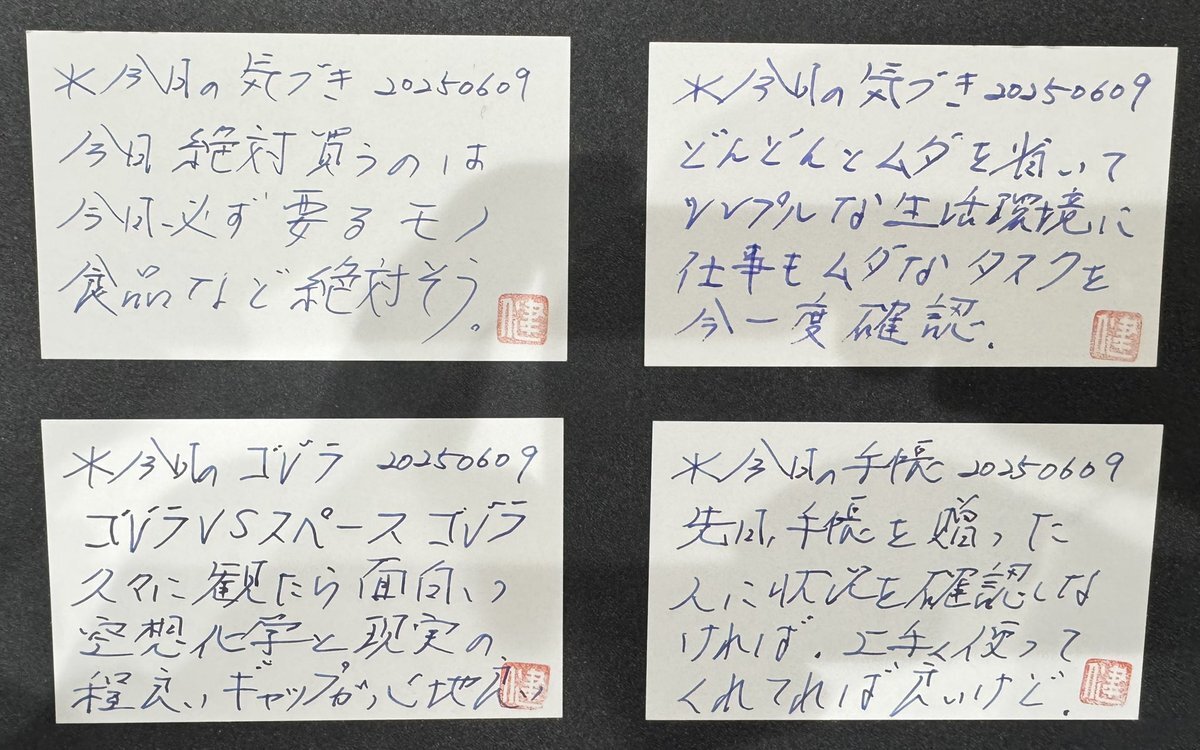 *今日の気づき 20250609
今日絶対買うのは
今日必ず要るモノ
食品など絶対そう。
健
*今日の気づき 20250609
どんどんとムダを省いて
シンプルな生活環境に
仕事もムダなタスクを
今一度確認.
健
*今日のゴジラ 20250609
ゴジラVSスペースゴジラ
久々に観たら面白い
空想化学と現実の
程良いギャップが心地良い
健
*今日の手帳 20250609
先日,手帳を贈った
人に状況を確認しな
ければ.上手く使って
くれてれば良いけど.
健